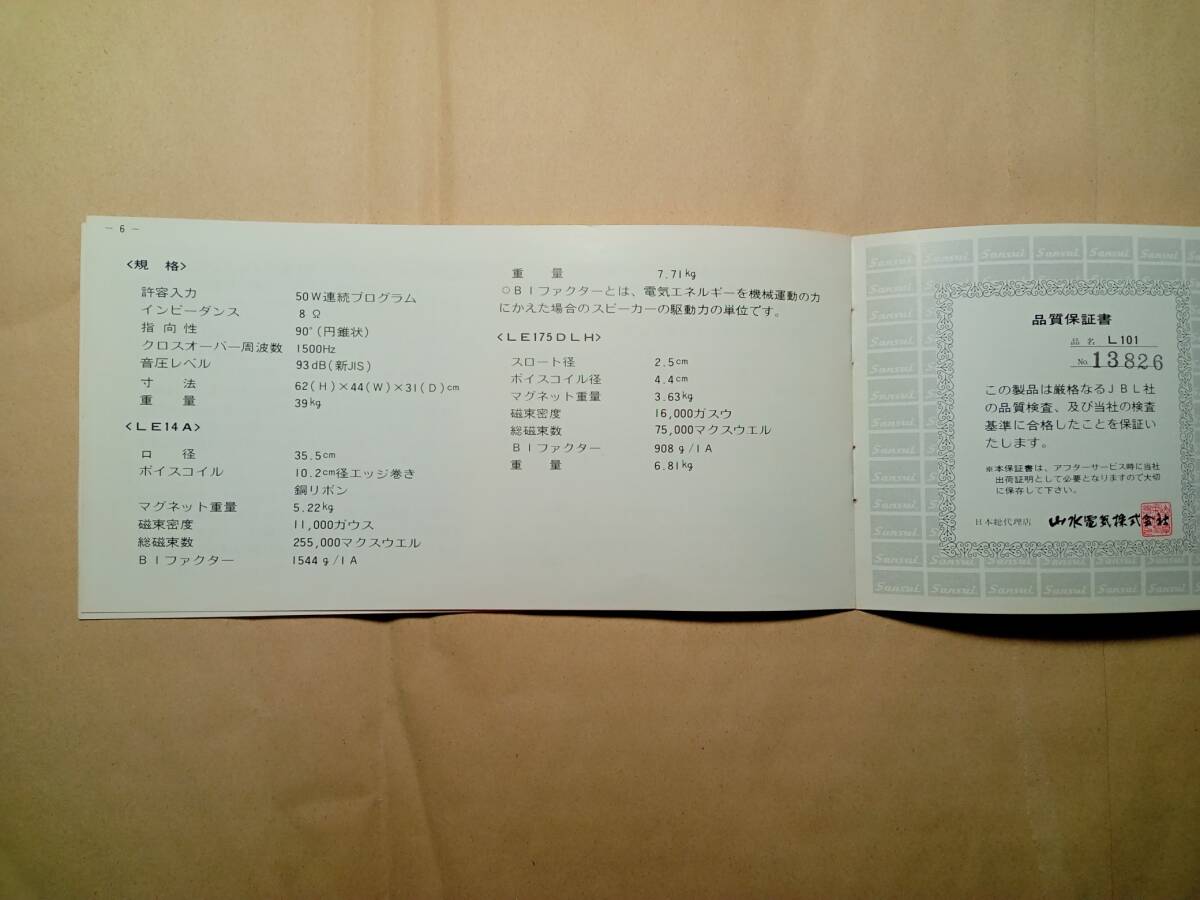 − 6 −
〈規　格〉
許容入力　50W連続プログラム
インピーダンス　8 Ω
指 向 性　90°(円錐状)
クロスオーバー周波数　1500Hz
音圧レベル　93dB(新JIS)
寸　法　62(H)×44(W)×31(D)cm
重　量　39kg
〈LE14A〉
口　径　35.5cm
ボイスコイル　10.2cm径エッジ巻き
銅リボン
マグネット重量　5.22kg
磁束密度　11,000ガウス
総磁束数　255,000マクスウエル
B I ファクター　1544 g/1A
重　量　7.71kg
○B I ファクターとは、電気エネルギーを機械運動の力
にかえた場合のスピーカーの駆動力の単位です。
〈LE175DLH〉
スロート径　2.5cm
ボイスコイル径　4.4cm
マグネット重量　3.63kg
磁束密度　16,000ガスウ
総磁束数　75,000マクスウエル
B I ファクター　908 g/1A
重　量　6.81kg
Sansui Sansui Sansui Sansui Sansui
品質保証書
品 名　L101
No. 13826
この製品は厳格なるJBL社
の品質検査、及び当社の検査
基準に合格したことを保証い
たします。
※本保証書は、アフターサービス時に当社
出荷証明として必要となりますので大切
に保存して下さい。
日本総代理店　山水電気株式会社
Sansui Sansui Sansui Sansui Sansui